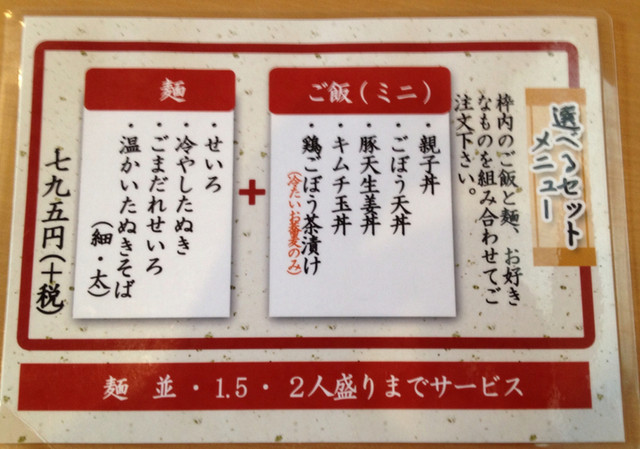 選べるセット
メニュー
枠内のご飯と麺、お好き
なものを組み合わせてご
注文下さい。
ご飯(ミニ)
・親子丼
・ごぼう天丼
・豚天生姜丼
・キムチ玉丼
・鶏ごぼう茶漬け
(冷たいお蕎麦のみ)
+
麺
・せいろ
・冷やしたぬき
・ごまだれせいろ
・温かいたぬきそば
(細・太)
七九五円(+税)
麺 並・1.5・2人盛りまでサービス